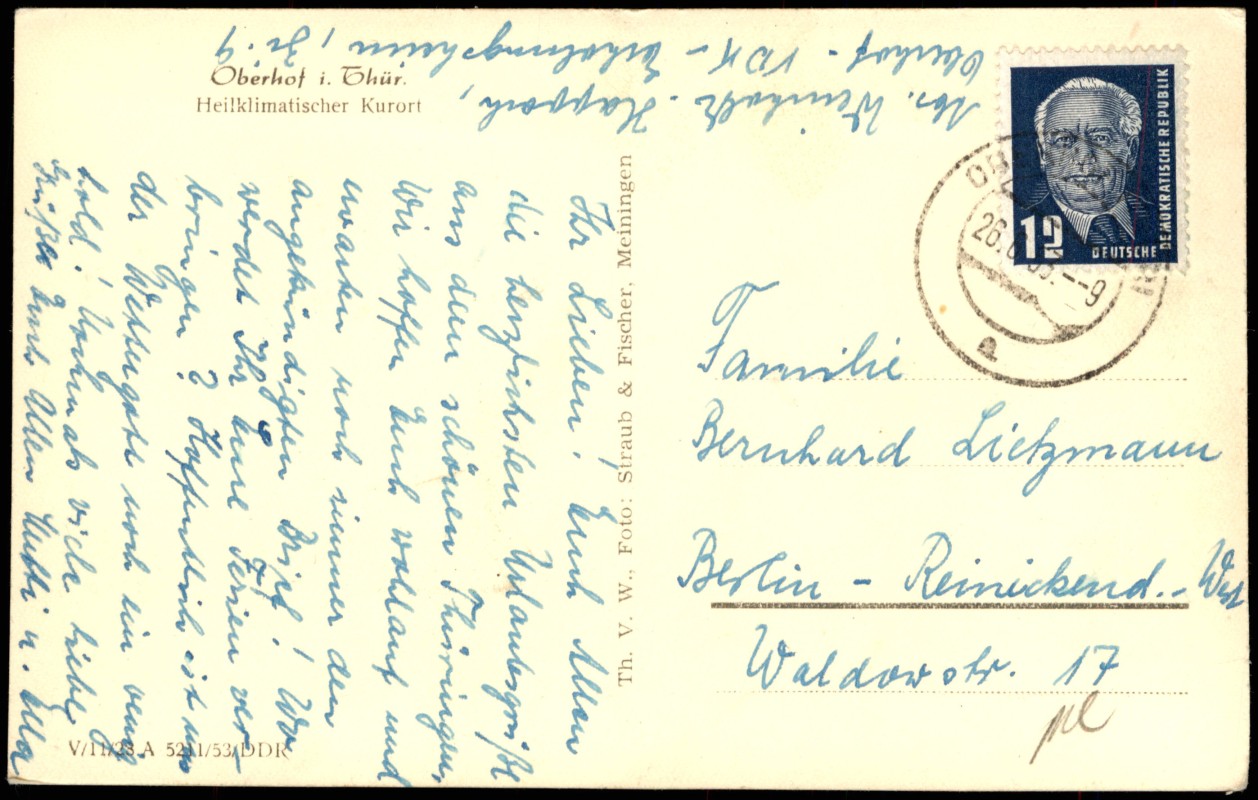 Oberhof i. Thür.
Heilklimatischer Kurort
Abs. Weinholz - Happach,
Oberhof - VDK - Erholungsheim,
Ihr Lieben! Euch Allen
die herzlichsten Urlaubsgrüße
aus dem schönen Thüringen,
Wir hoffen Euch wohlauf und
warten noch immer den
angekündigten Brief! Wo
werdet Ihr Eure Ferien ver-
bringen? Hoffentlich ist uns
der Wettergott noch ein wenig
hold! Vormals viele liebe
Grüße Euch Allen Mutti u. Ella
Th. V. W., Foto: Straub & Fischer, Meiningen
V/11/28 A 5211/53/DDR
12
DEUTSCHE
DEMOKRATISCHE REPUBLIK
26.
--9
a
Familie
Bernhard Lietzmann
Berlin - Reinickend.-West
Waldowstr. 17